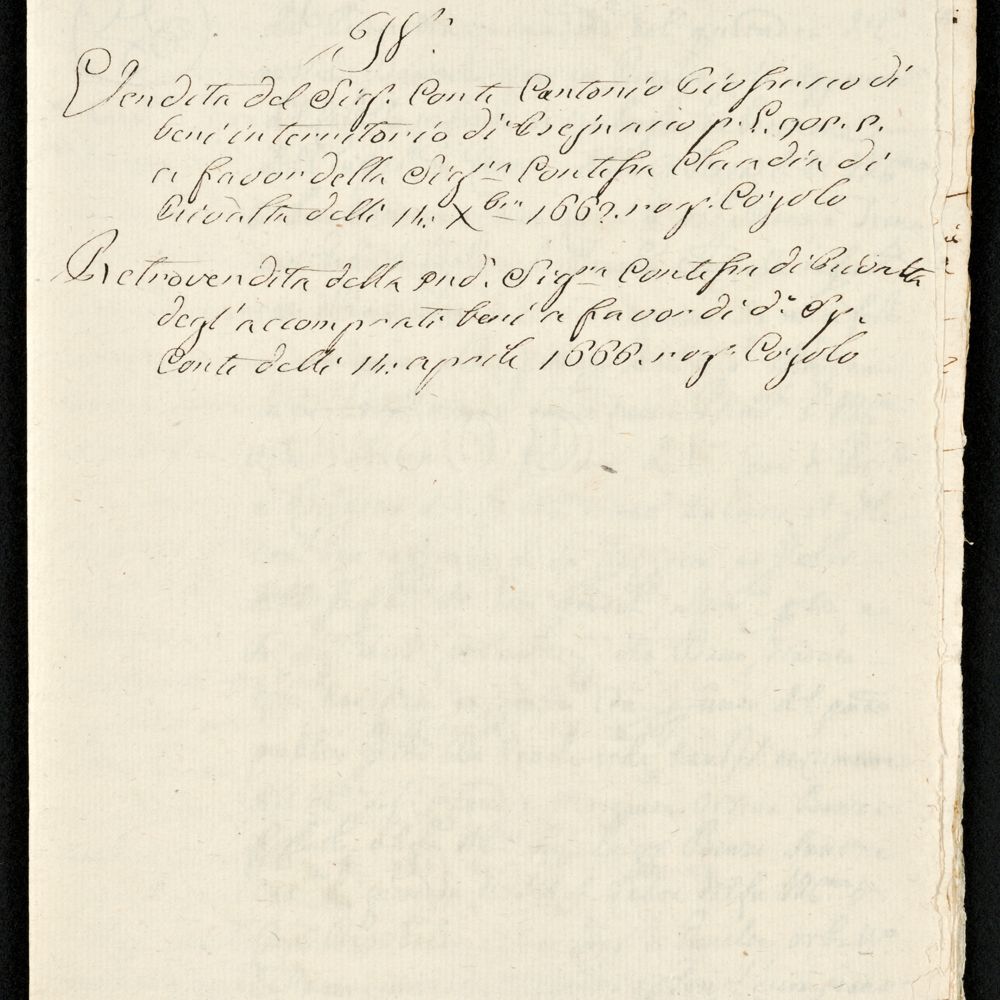 Vendita del Sig.r Conte Antonio di
beni in territorio di p. L.
a favor della Sig.ra Contessa Claudia di
Rivalta delli 14. Xbre 1662. rog.to Cozolo
Retrovendita della pred.a Sig.ra Contessa di Rivalta
degl'accomprati beni a favor di d.o Sig.r
Conte delli 14. aprile 1666. rog.to Cozolo